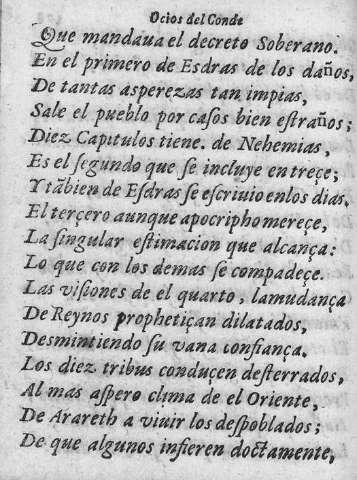 Ocios del Conde
Que mandaua el decreto Soberano.
En el primero de Esdras de los daños,
De tantas asperezas tan impias,
Sale el pueblo por casos bien estraños;
Diez Capitulos tiene. de Nehemias,
Es el segundo que se incluye en treçe;
Y tãbien de Esdras se escriuio enlos dias.
El terçero aunque apocripho mereçe,
La singular estimacion que alcança:
Lo que con los demas se compadeçe.
Las visiones de el quarto, lamudança
De Reynos prophetiçan dilatados,
Desmintiendo su vana confiança.
Los diez tribus conduçen desterrados,
Al mas aspero clima de el Oriente,
De Arareth a viuir los despoblados;
De que algunos infieren doctamente,